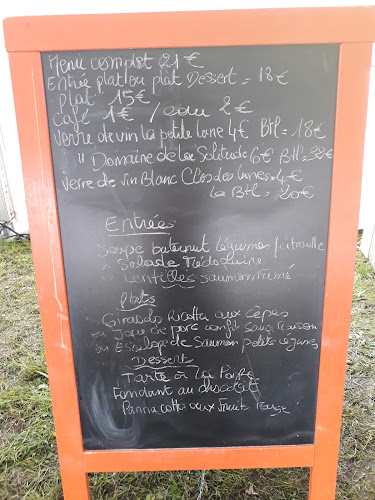 Menu complet 21€
Entrée plat ou plat Dessert = 18€
plat 15€
Café 1€ / eau 2€
Verre de vin la petite lane 4€ Btl = 18€
" Domaine de la Solitude 6€ Btl =
Verre de vin Blanc Clos des lunes 4€
la Btl = 20€
Entrées
Soupe butternut légumes
ou Salade
ou Lentilles saumon fumé
Plats
Risotto aux cèpes
ou Joue de porc confit sauce
ou Escalope de Saumon petits légumes
Desserts
Tarte à la Poire
Fondant au chocolat
Panna cotta aux fruits rouge